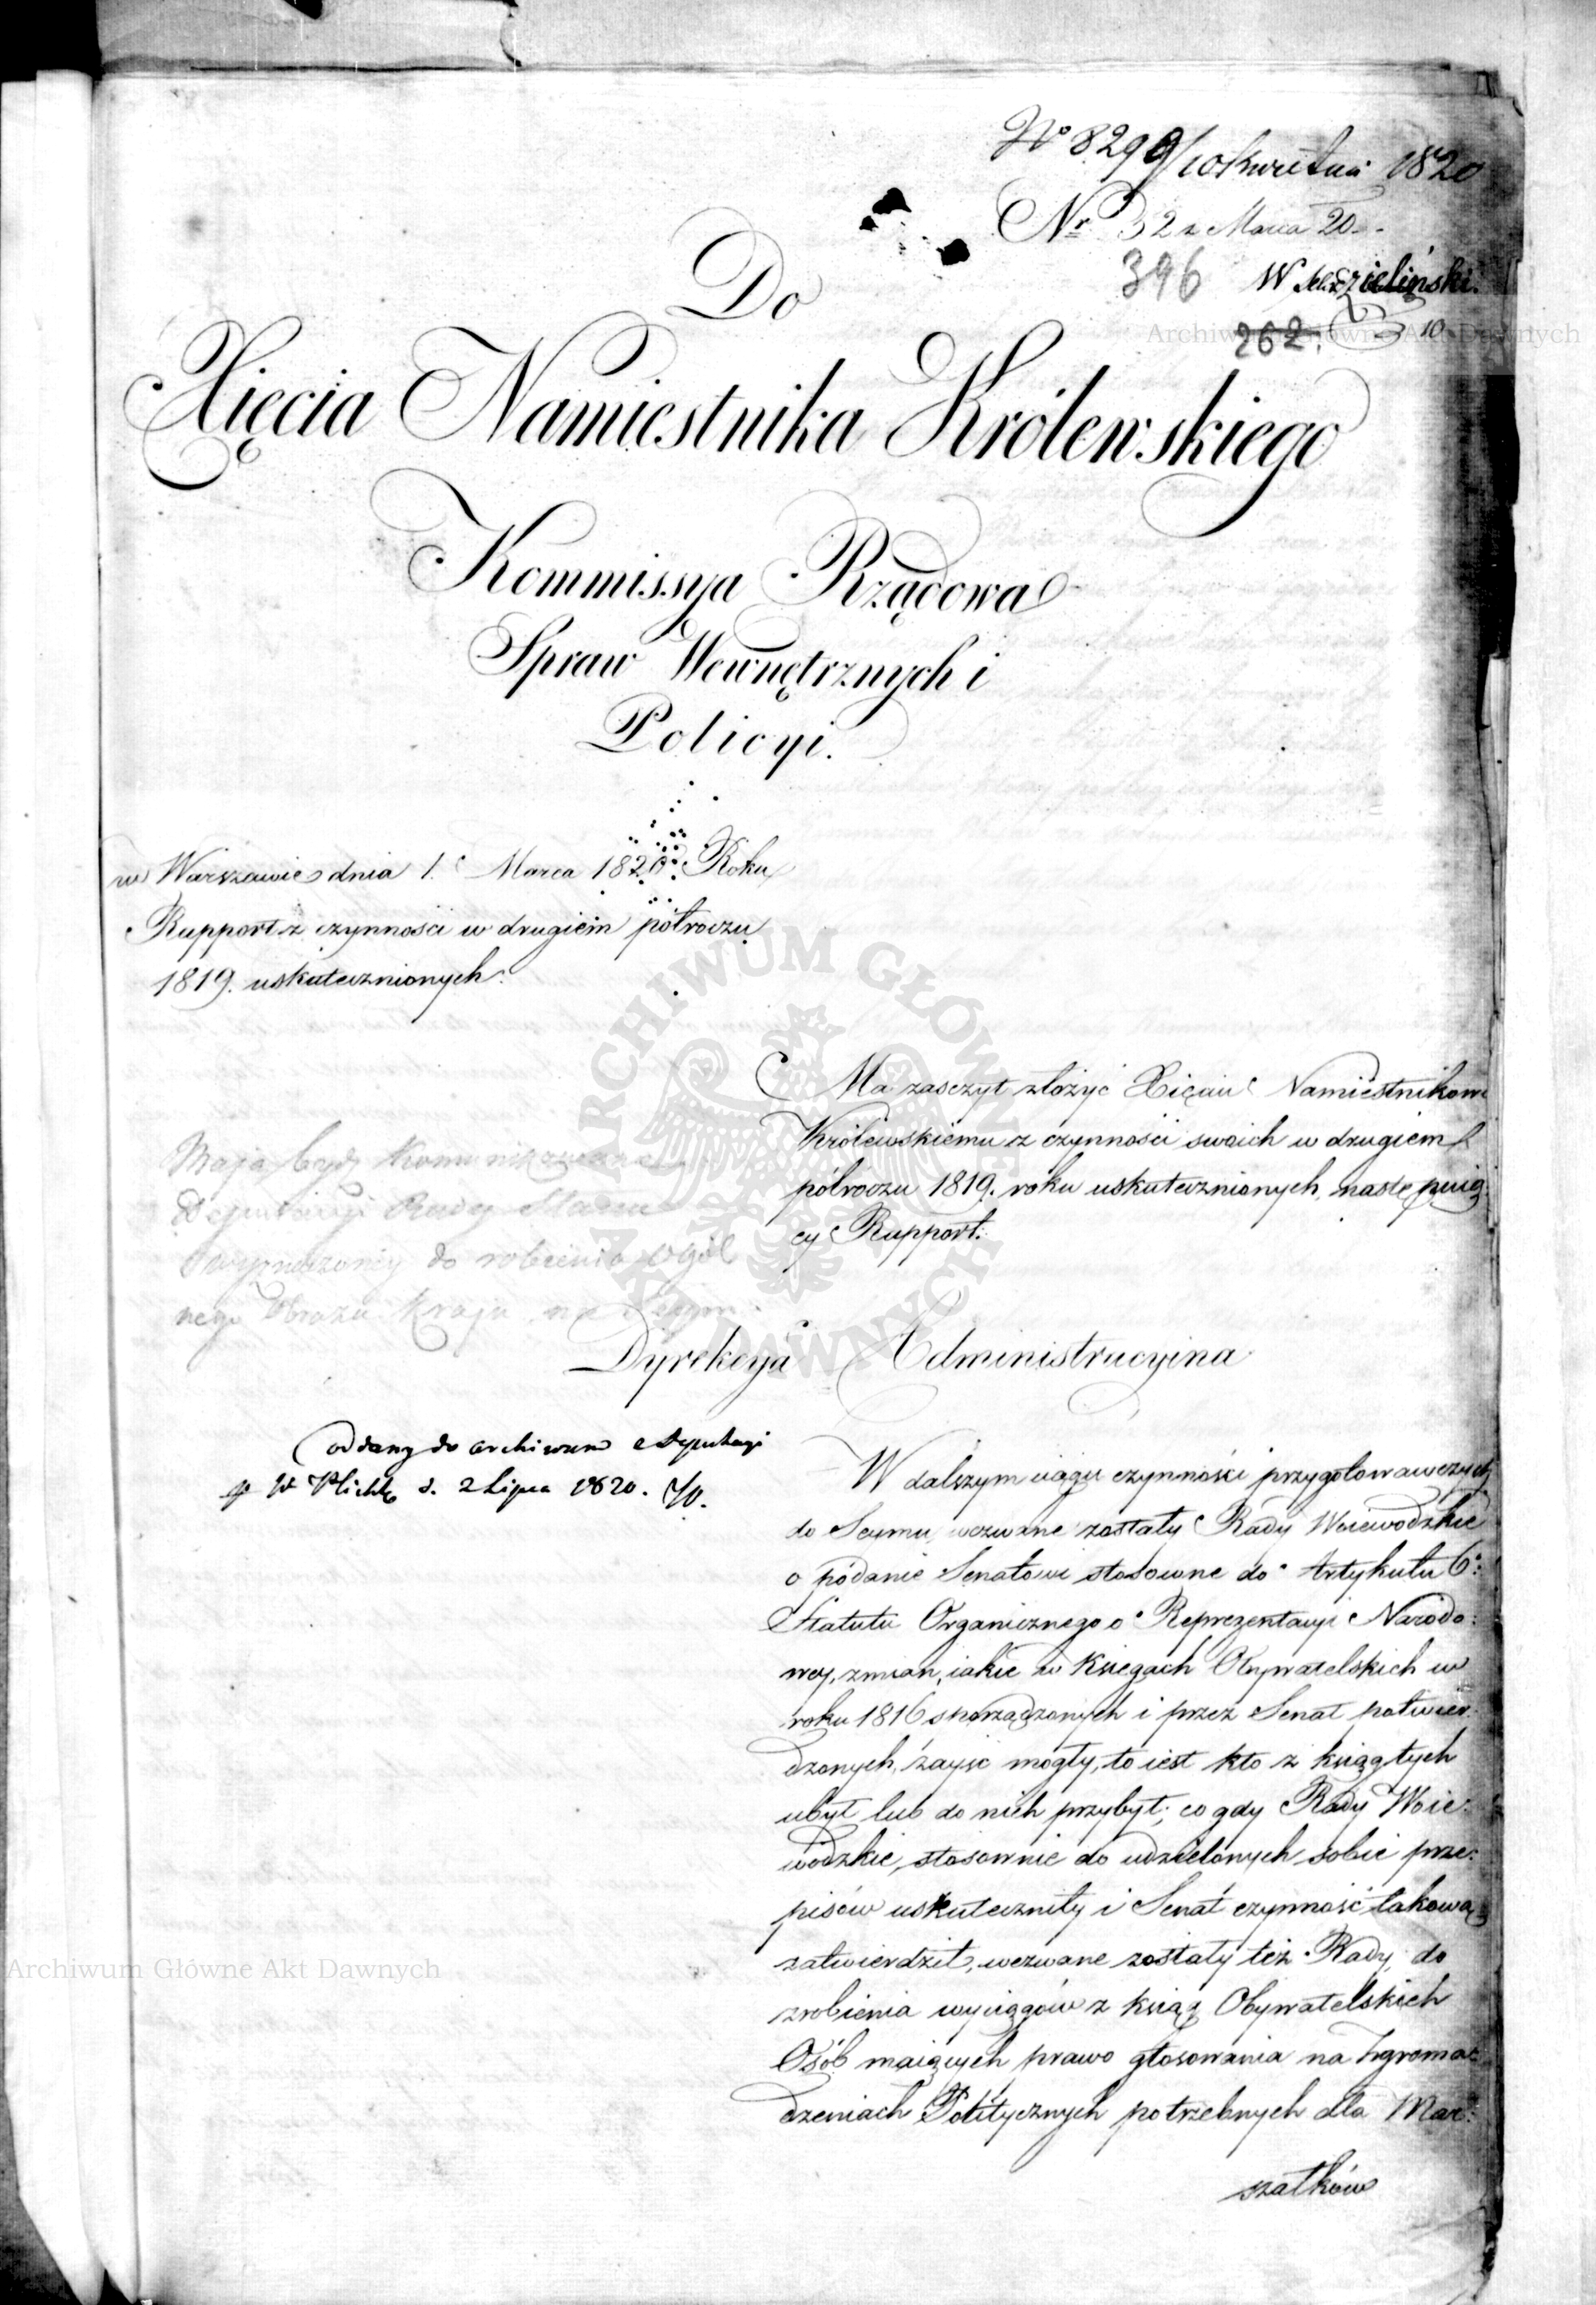 Nº 8290/10 kwietnia 1820
Nr 32 z Marca 20
396 W Zieliński
262. 10
Do
Xięcia Namiestnika Królewskiego
Kommissya Rządowa
Spraw Wewnętrznych i
Policyi.
w Warszawie dnia 1. Marca 1820. Roku
Rapport z czynności w drugiém półroczu
1819. uskutecznionych.
Ma zasczyt złożyć Xięciu Namiestnikowi
Królewskiemu z czynności swoich w drugiem
półroczu 1819. roku uskutecznionych, następuią:
cy Rapport.
Maja być kommunikowane
Deputacyi Rady Stanu
wyznaczoney do robienia ogól
nego Obrazu Kraju na Seym.
Dyrekcya Administracyina
oddany do archiwum Deputacyi
W Plichtę d. 2 Lipca 1820.
W dalszym ciągu czynności przygotowawczych
do Seymu, wezwane zostały Rady Woiewódzkie
o podanie Senatowi stosowne do Artykułu 6.
Statutu Organicznego o Reprezentacyi Narodo:
wey, zmian, iakie w Księgach Obywatelskich w
roku 1816 sporządzonych i przez Senat potwier:
dzonych, zayść mogły, to iest kto z ksiąg tych
ubył lub do nich przybył; co gdy Rady Woie:
wódzkie, stosownie do udzielonych sobie prze:
pisów uskuteczniły i Senat czynność takową
zatwierdził, wezwane zostały też Rady, do
zrobienia wyciągów z ksiąg Obywatelskich
Osób maiących prawo głosowania na Zgroma:
dzeniach Politycznych potrzebnych dla Mar:
szałków
Archiwum Główne Akt Dawnych
Archiwum Główne Akt Dawnych
ARCHIWUM GŁÓWNE AKT DAWNYCH